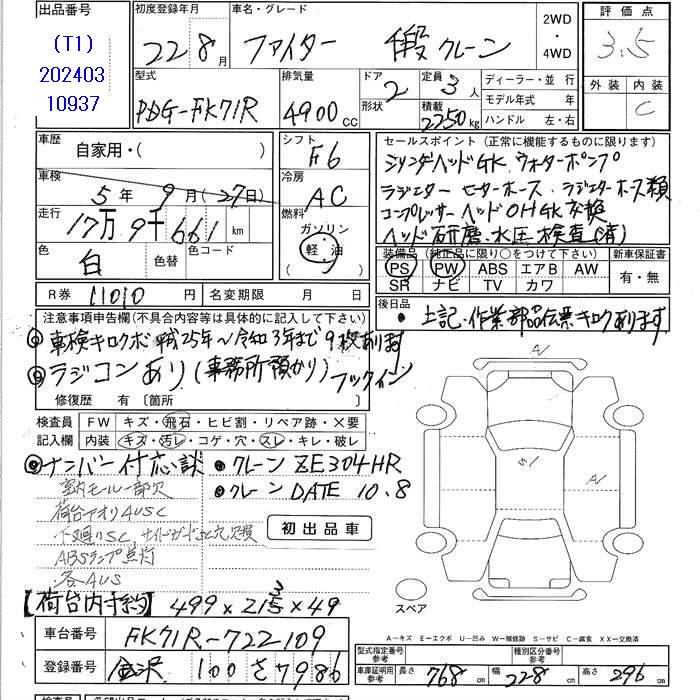 出品番号
(T1)
202403
10937
初度登録年月
22 8 月
車名・グレード
ファイター 4段クレーン
2WD
・
4WD
評価点
3.5
外装 内装
C
型式
PDG-FK71R
排気量
4900 CC
ドア
2
形状
定員
3 人
積載
2250 kg
ディーラー・並行
モデル年式 年
ハンドル 左・右
車歴
自家用・( )
車検
5年 9月(27日)
走行
17万9千661 km
色
白
色替
色コード
R券 11010 円
名変期限 月 日
シフト
F6
冷房
AC
燃料
ガソリン
軽・油
セールスポイント (正常に機能するものに限ります)
シリンダヘッドGK. ウォーターポンプ
ラジエター ヒーターホース. ラジエターホース類
コンプレッサーヘッドOHGK交換
ヘッド研磨. 水圧検査(済)
装備品 (純正品に限り○をつけて下さい)
新車保証書
PS PW ABS エアB AW
SR ナビ TV カワ
有・無
後日品
● 上記・作業部品伝票キロクあります
注意事項申告欄(不具合内容等は具体的に記入して下さい)
◎車検キロクボ 平成25年〜令和3年まで9枚あります
◎ラジコンあり(事務所預かり) フックイン
修復歴 有 〔箇所 〕
検査員
記入欄
FW キズ・飛石・ヒビ割・リペア跡・×要
内装 キズ・汚レ・コゲ・穴・スレ・キレ・破レ
◎ナンバー付応談 ●クレーン ZE304HR
●クレーン DATE 10.8
室内モール一部欠
荷台アオリAUSC
下廻りSC、サイドガードSC穴欠損
ABSランプ点灯
各AUS
初出品車
【荷台内寸約】 499×213×49
車台番号 FK71R-722109
登録番号 金沢 100 さ 7986
A1
A1
スペア
A－キズ E－エクボ U－凹み W－補修跡 S－サビ C－腐食 XX－交換済
型式指定番号
参考
種別区分番号
参考
車庫証明用
参考
長さ 768 cm 幅 228 cm 高さ 296 cm